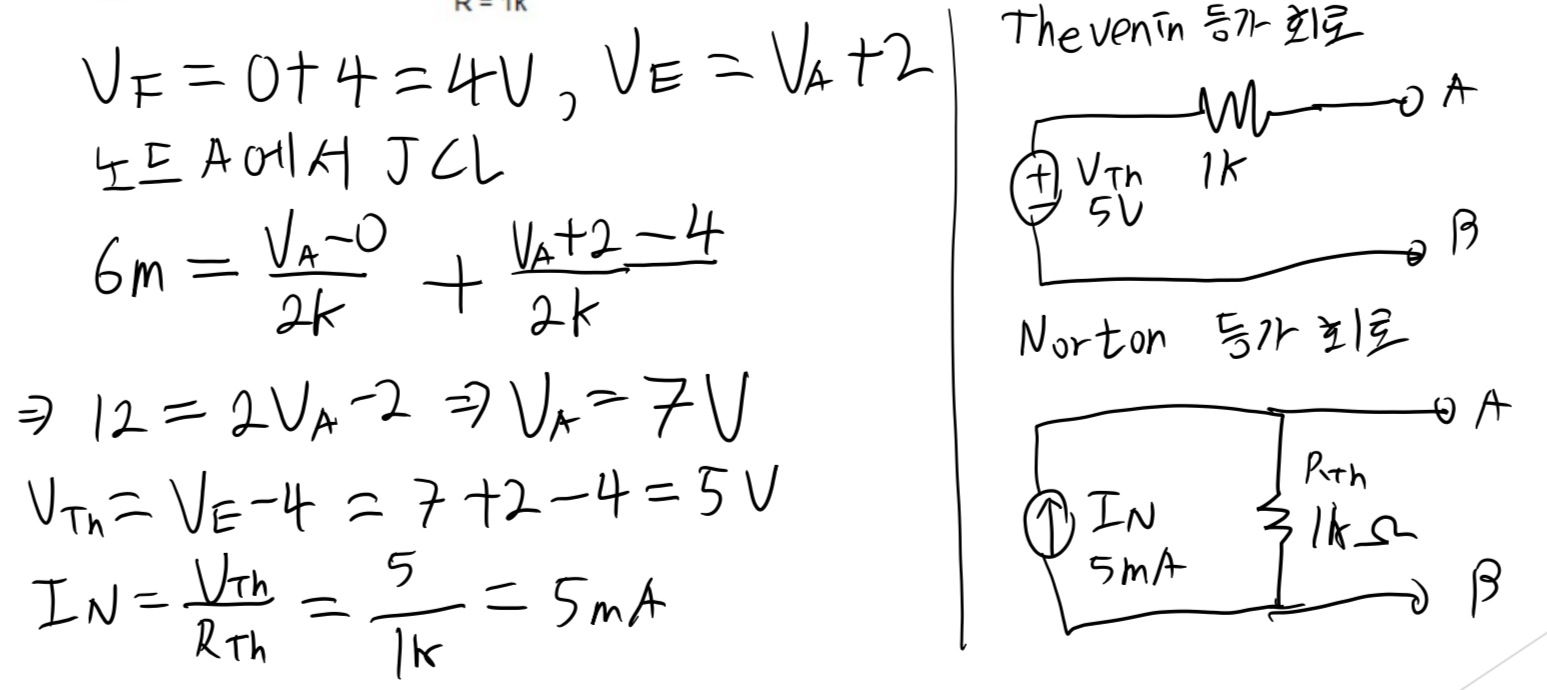 R = 1k
V_F = 0+4 = 4V, V_E = V_A+2
노드 A에서 JCL
6m = (V_A-0)/2k + (V_A+2-4)/2k
⇒ 12 = 2V_A-2 ⇒ V_A = 7V
V_Th = V_E-4 = 7+2-4 = 5V
I_N = V_Th/R_Th = 5/1k = 5mA
Thevenin 등가 회로
A
+ V_Th 1k
- 5V
B
Norton 등가 회로
A
R_Th
↑ I_N 1kΩ
5mA
B